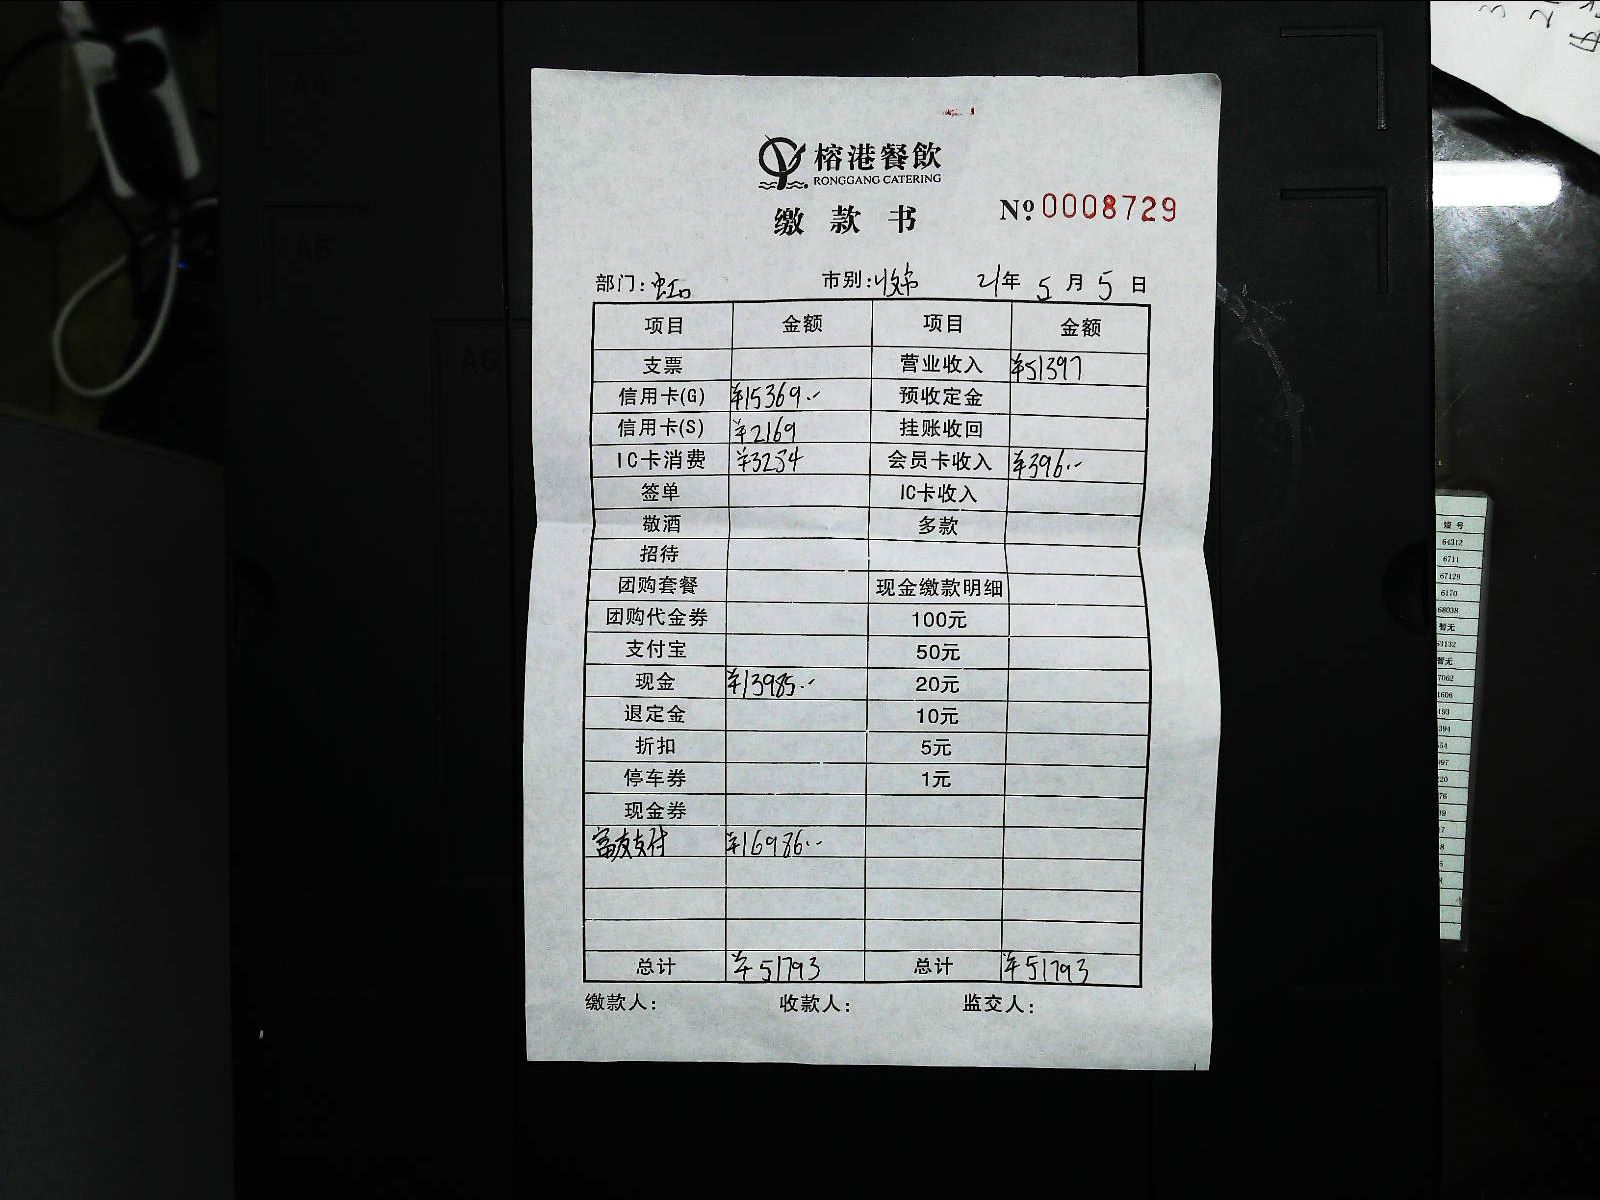 榕港餐飲
RONGGANG CATERING
缴款书
№ 0008729
部门:虹口 市别:收市 21年 5月 5日
项目 金额 项目 金额
支票 营业收入 ¥51397
信用卡(G) ¥15369.-- 预收定金
信用卡(S) ¥2169 挂账收回
IC卡消费 ¥3284 会员卡收入 ¥396.--
签单 IC卡收入
敬酒 多款
招待
团购套餐 现金缴款明细
团购代金券 100元
支付宝 50元
现金 ¥13985.-- 20元
退定金 10元
折扣 5元
停车券 1元
现金券
富友支付 ¥16986.--
总计 ¥51793 总计 ¥51793
缴款人: 收款人: 监交人:
A5
A6
短号
64312
6711
67129
6170
68038
暂无
暂无